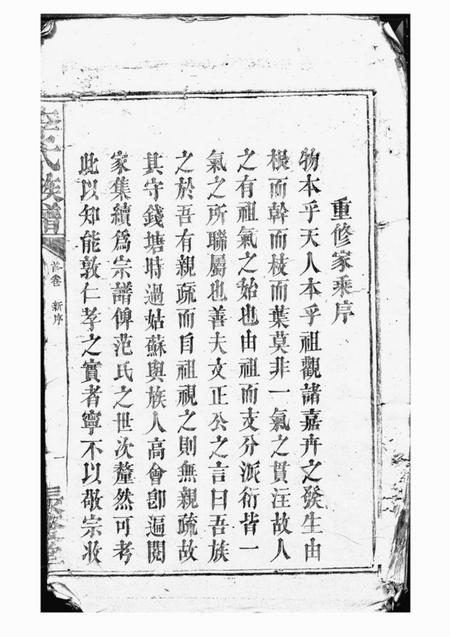 重修家乘序
物本乎天人本乎祖觀諸嘉卉之發生由
根而幹而枝而葉莫非一氣之貫注故人
之有祖氣之始也由祖而支分派衍皆一
氣之所聯屬也善夫文正公之言曰吾族
之於吾有親疏而自祖視之則無親疏故
其守錢塘時過姑蘇與族人高會卽遍閱
家集續爲宗譜俾范氏之世次釐然可考
此以知能敦仁孝之實者寧不以敬宗收
氏族譜
首卷 新序
堂